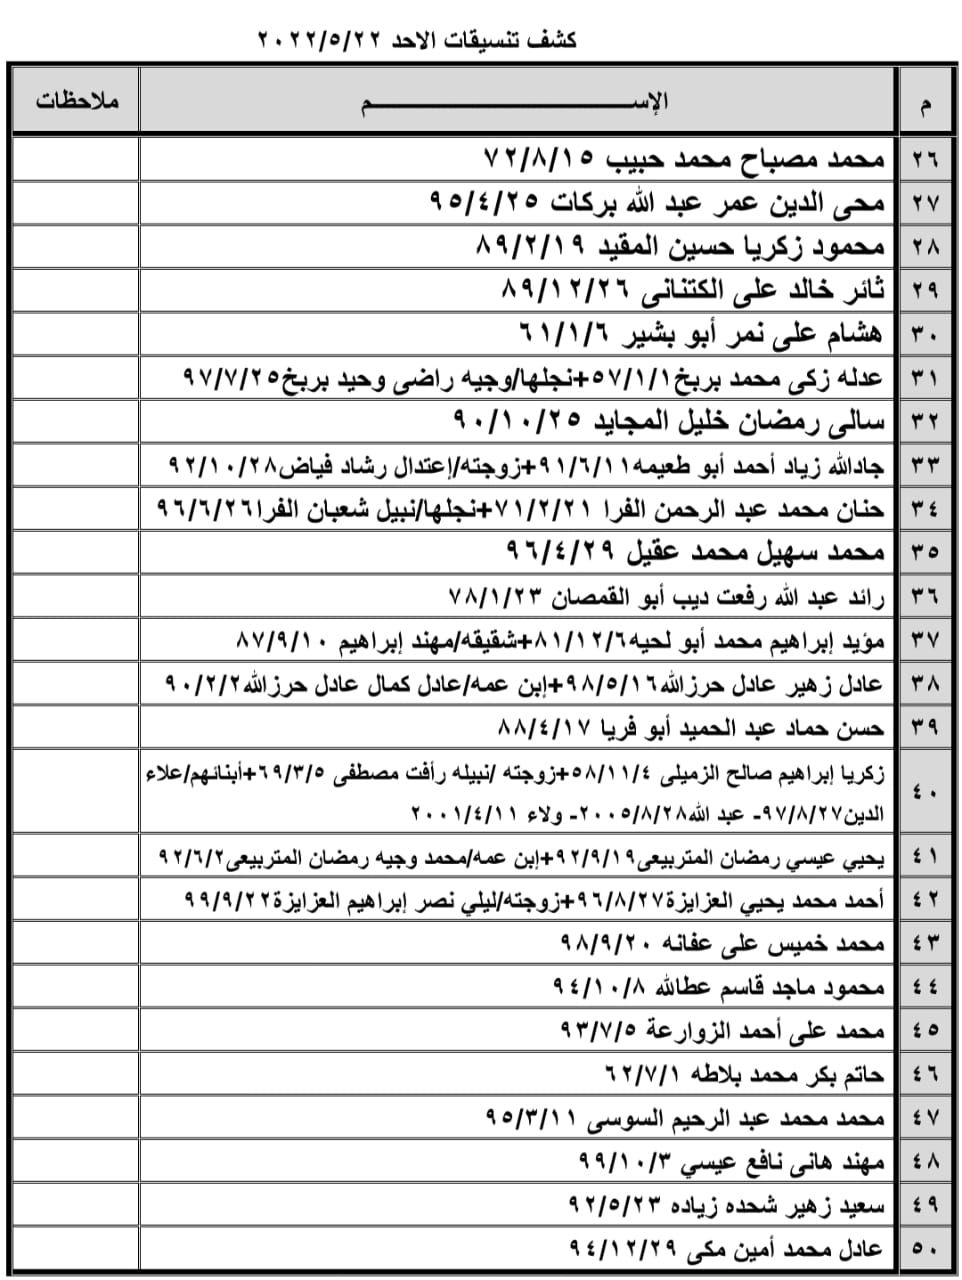 كشف تنسيقات الاحد ٢٠٢٢/٥/٢٢
م الإســـــــــــــــــــــم ملاحظات
٢٦ محمد مصباح محمد حبيب ٧٢/٨/١٥
٢٧ محى الدين عمر عبد الله بركات ٩٥/٤/٢٥
٢٨ محمود زكريا حسين المقيد ٨٩/٢/١٩
٢٩ ثائر خالد على الكتنانى ٨٩/١٢/٢٦
٣٠ هشام على نمر أبو بشير ٦١/١/٦
٣١ عدله زكى محمد بربخ٥٧/١/١+نجلها/وجيه راضى وحيد بربخ٩٧/٧/٢٥
٣٢ سالى رمضان خليل المجايد ٩٠/١٠/٢٥
٣٣ جادالله زياد أحمد أبو طعيمه٩١/٦/١١+زوجته/إعتدال رشاد فياض٩٢/١٠/٢٨
٣٤ حنان محمد عبد الرحمن الفرا ٧١/٢/٢١+نجلها/نبيل شعبان الفرا٩٦/٦/٢٦
٣٥ محمد سهيل محمد عقيل ٩٦/٤/٢٩
٣٦ رائد عبد الله رفعت ديب أبو القمصان ٧٨/١/٢٣
٣٧ مؤيد إبراهيم محمد أبو لحيه٨١/١٢/٦+شقيقه/مهند إبراهيم ٨٧/٩/١٠
٣٨ عادل زهير عادل حرزالله٩٨/٥/١٦+إبن عمه/عادل كمال عادل حرزالله٩٠/٢/٢
٣٩ حسن حماد عبد الحميد أبو فريا ٨٨/٤/١٧
٤٠ زكريا إبراهيم صالح الزميلى ٥٨/١١/٤+زوجته /نبيله رأفت مصطفى ٦٩/٣/٥+أبنائهم/علاء
الدين٩٧/٨/٢٧- عبد الله٢٠٠٥/٨/٢٨- ولاء ٢٠٠١/٤/١١
٤١ يحيي عيسي رمضان المتربيعى٩٢/٩/١٩+إبن عمه/محمد وجيه رمضان المتربيعى٩٢/٦/٢
٤٢ أحمد محمد يحيي العزايزة٩٦/٨/٢٧+زوجته/ليلي نصر إبراهيم العزايزة٩٩/٩/٢٢
٤٣ محمد خميس على عفانه ٩٨/٩/٢٠
٤٤ محمود ماجد قاسم عطالله ٩٤/١٠/٨
٤٥ محمد على أحمد الزوارعة ٩٣/٧/٥
٤٦ حاتم بكر محمد بلاطه ٦٢/٧/١
٤٧ محمد محمد عبد الرحيم السوسى ٩٥/٣/١١
٤٨ مهند هانى نافع عيسي ٩٩/١٠/٣
٤٩ سعيد زهير شحده زياده ٩٢/٥/٢٣
٥٠ عادل محمد أمين مكى ٩٤/١٢/٢٩